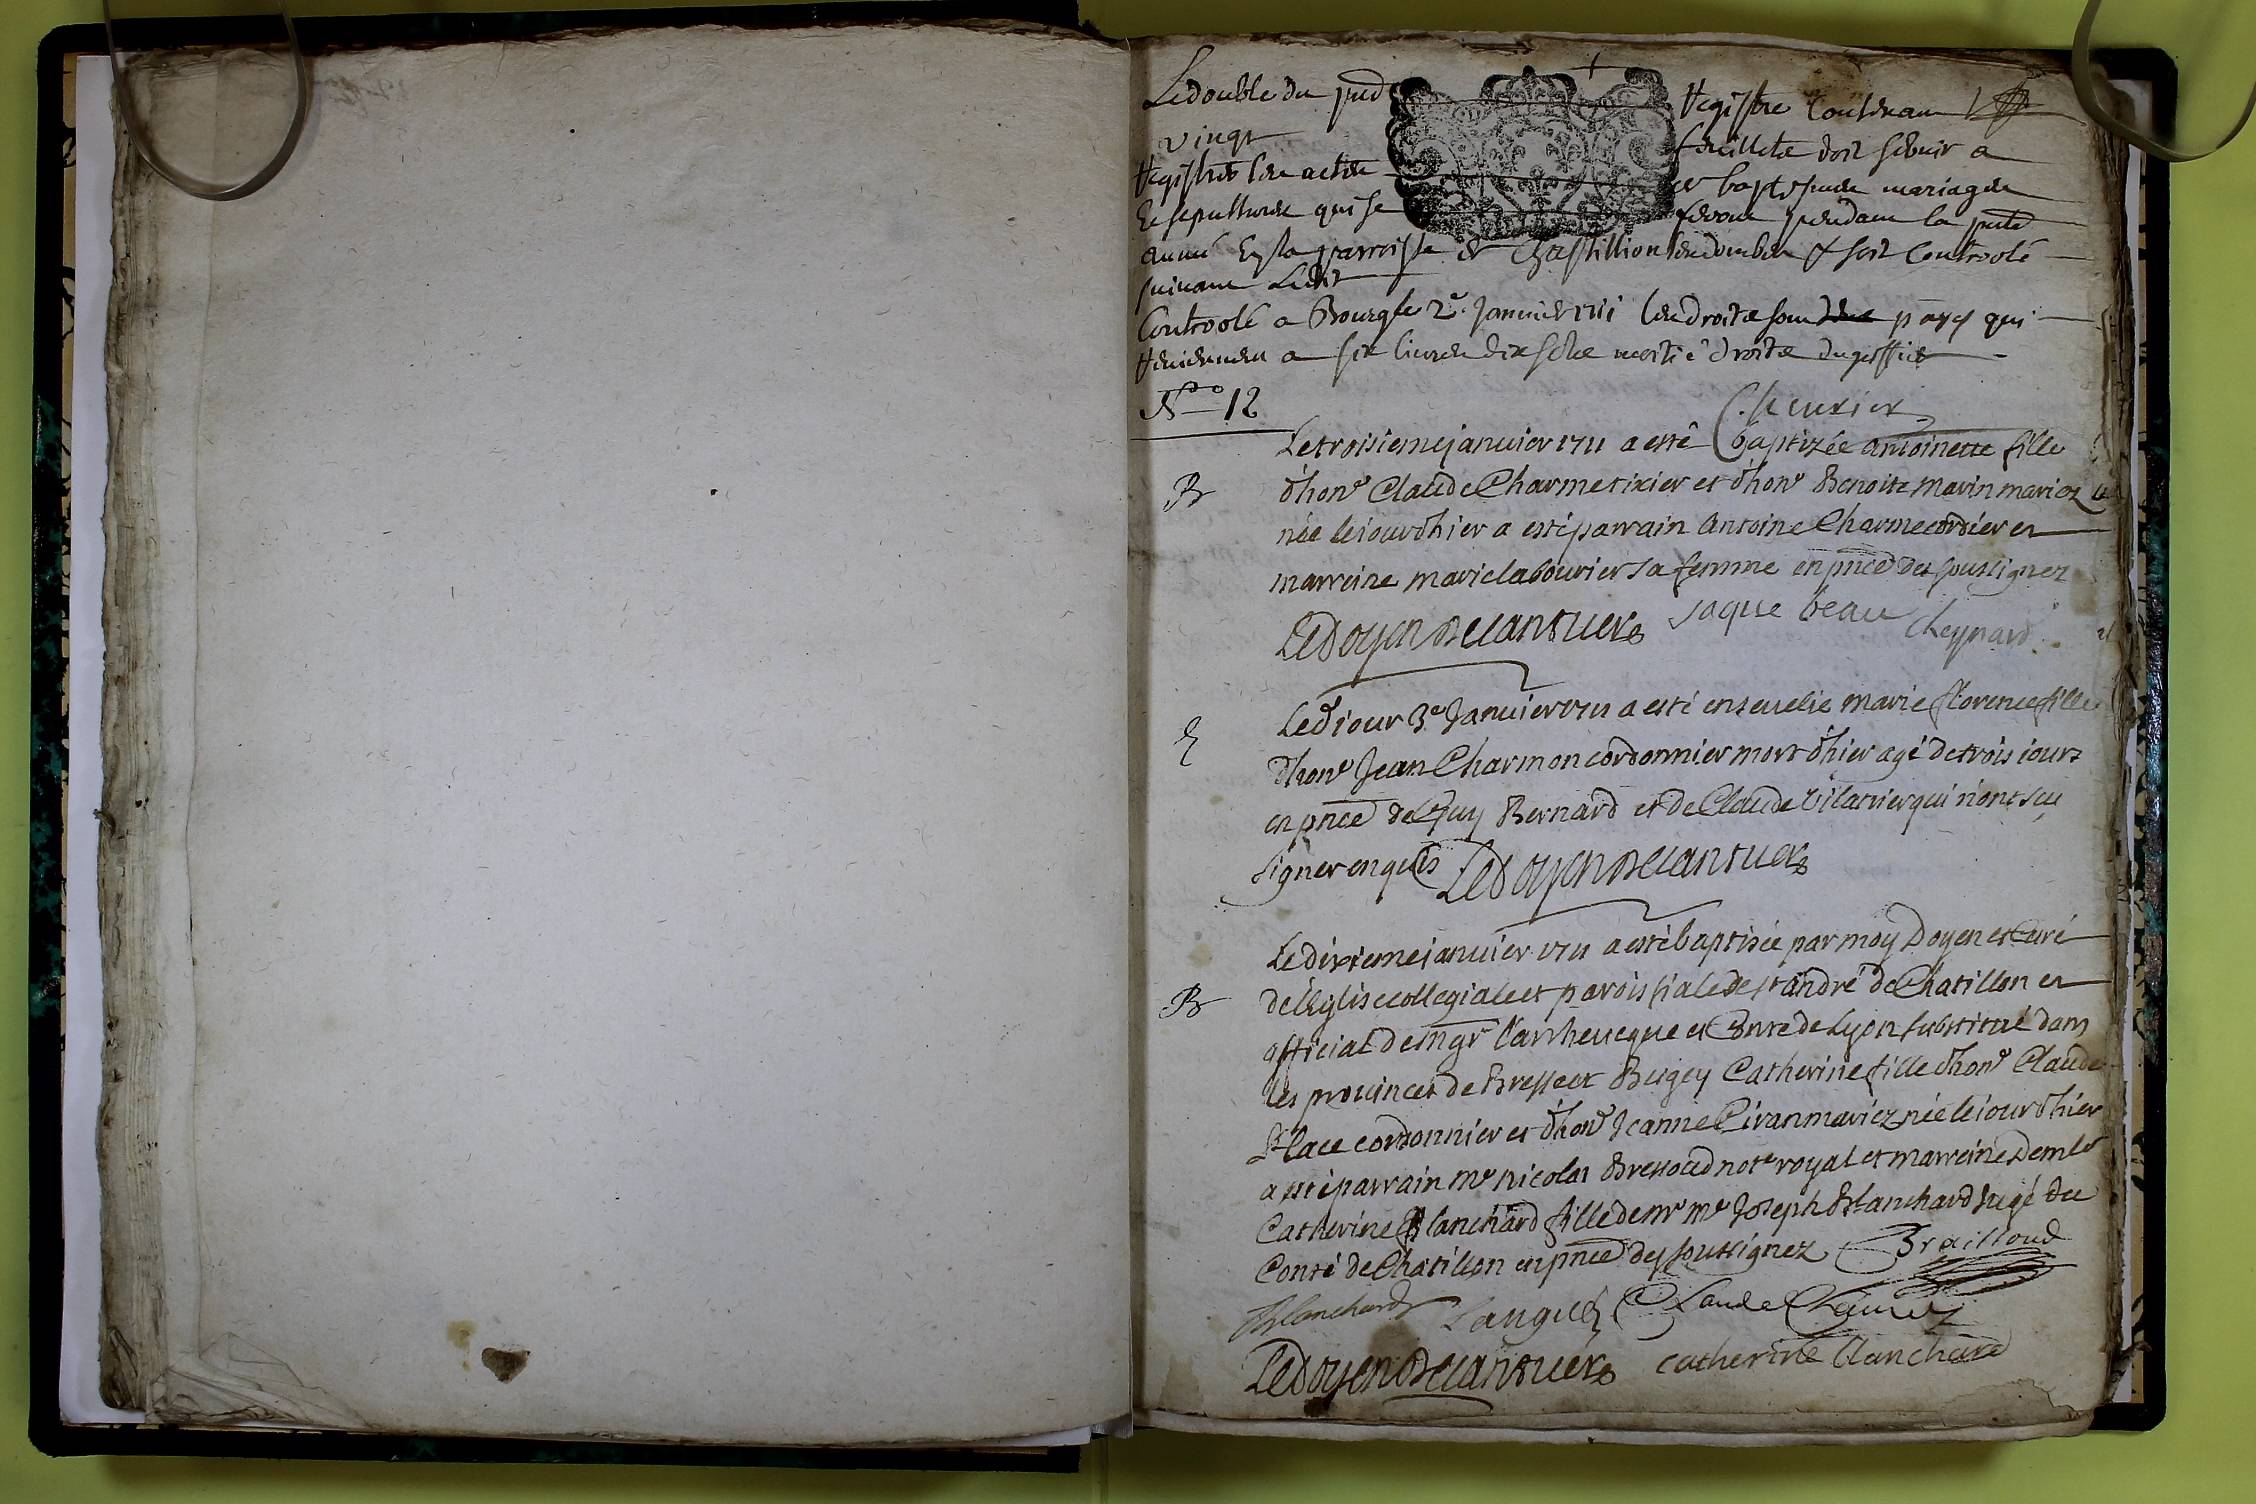 Le double du pnt Registre Contenant
vingt feuillets doit servir a
Registrer les actes de baptesmes mariages
Et sepultures qui se feront pendant la pnte
année En la parroisse de Chastillion les dombes & sera Controolé
suivant Ledit
Controolé a Bourg le 2e Janvier 1711 les droits sont payes qui
Reviennent a six livres dix sols moitié droits du
No 12
Chevrier
Le troisieme janvier 1711 a esté baptizée antoinette fille
B d'hone Claude Charme tixier et d'hone Benoite Marin mariez
née le iour d'hier a esté parrain Antoine Charme cordier et
marreine marie labourier sa femme en pnce des soussignez
Le Doyen Decanruer jaque beau Cheynard
Le dt jour 3e Janvier 1711 a esté ensevelie marie florence fille
E d'hone Jean Charmon cordonnier mort d'hier agé de trois iours
en pnce de Guy Bernard et de Claude Vilatier qui n'ont sçu
signer enquis Le Doyen Decanruer
Le dixieme janvier 1711 a esté baptisée par moy Doyen et Curé
B de l'Eglise collegiale et paroissiale de st andré de Chatillon et
official de mgr l'archeveque et Conte de Lyon substitué dans
les provinces de Bresse et Bugey Catherine fille d'hone Claude
Place cordonnier et d'hone Jeanne Civan mariez née le iour d'hier
a esté parrain Me nicolas Bressoud note royal et marreine Demle
Catherine Blanchard fille de mr me Joseph Blanchard Juge du
Conté de Chatillon en pnce des soussignez Brailloud
Blanchard Claude
Le Doyen Decanruer catherine blanchard